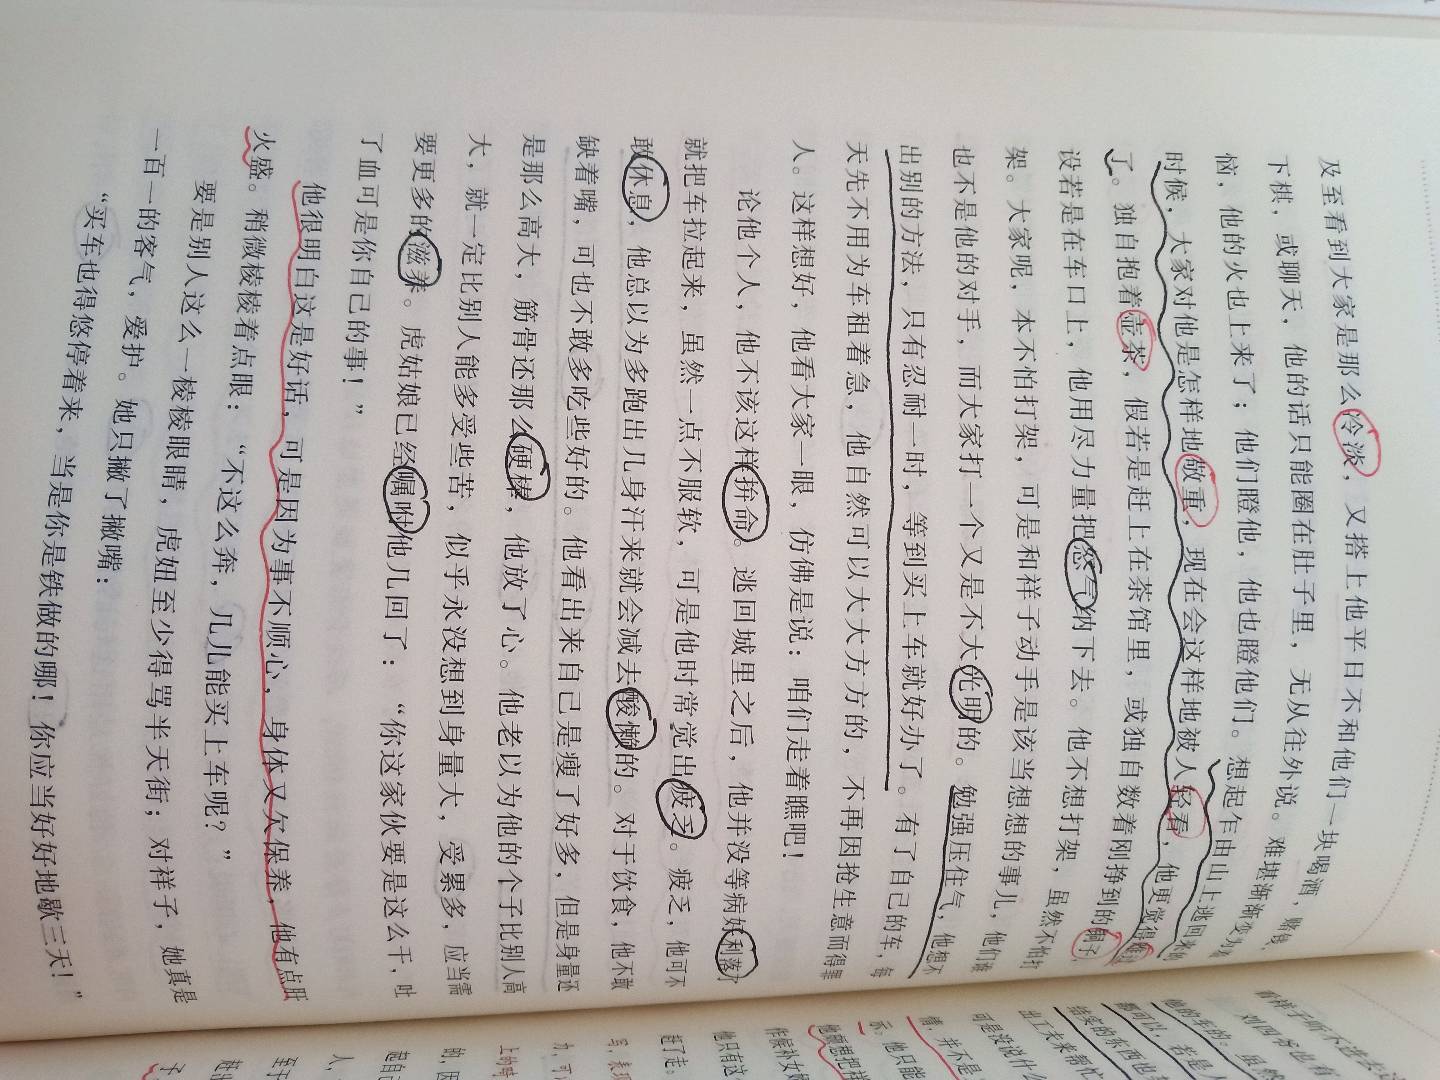 及至看到大家是那么冷淡，又搭上他平日不和他们一块喝酒，赌钱，
下棋，或聊天，他的话只能圈在肚子里，无从往外说。难堪渐渐变为羞
恼，他的火也上来了；他们瞪他，他也瞪他们。想起乍由山上逃回来的
时候，大家对他是怎样地敬重，现在会这样地被人轻看，他更觉得
了。独自抱着壶茶，假若是赶上在茶馆里，或独自数着刚挣到的铜子，
设若是在车口上，他用尽力量把怒气纳下去。他不想打架，虽然不怕打
架。大家呢，本不怕打架，可是和祥子动手是该当想想的事儿，他们谁
也不是他的对手，而大家打一个又是不大光明的。勉强压住气，他想不
出别的方法，只有忍耐一时，等到买上车就好办了。有了自己的车，每
天先不用为车租着急，他自然可以大大方方的，不再因抢生意而得罪
人。这样想好，他看大家一眼，仿佛是说：咱们走着瞧吧！
论他个人，他不该这样拚命。逃回城里之后，他并没等病好利落了
就把车拉起来，虽然一点不服软，可是他时常觉出疲乏。疲乏，他可不
敢休息，他总以为多跑出几身汗来就会减去酸懒的。对于饮食，他不敢
缺着嘴，可也不敢多吃些好的。他看出来自己是瘦了好多，但是身量还
是那么高大，筋骨还那么硬棒，他放了心。他老以为他的个子比别人高
大，就一定比别人能多受些苦，似乎永没想到身量大，受累多，应当需
要更多的滋养。虎姑娘已经嘱咐他几回了：“你这家伙要是这么干，吐
了血可是你自己的事！”
他很明白这是好话，可是因为事不顺心，身体又欠保养，他有点肝
火盛。稍微棱棱着点眼：“不这么奔，几儿能买上车呢？”
要是别人这么一棱棱眼睛，虎妞至少得骂半天街；对祥子，她真是
一百一的客气，爱护。她只撇了撇嘴：
“买车也得悠停着来，当是你是铁做的哪！你应当好好地歇三天！”